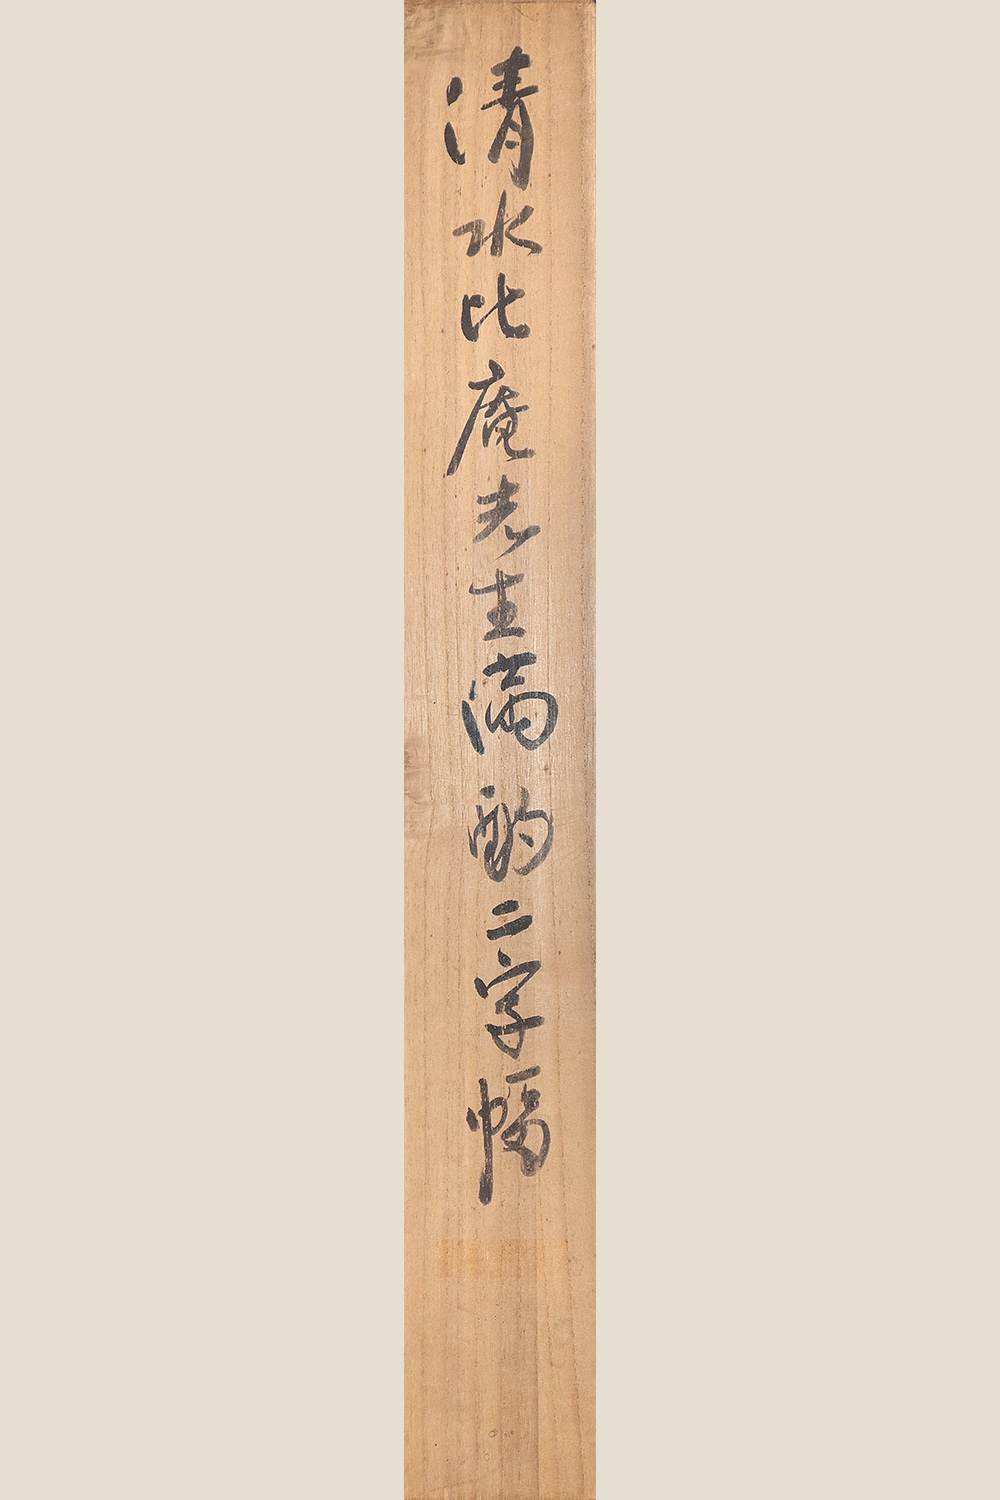 清水比庵先生満酌二字幅